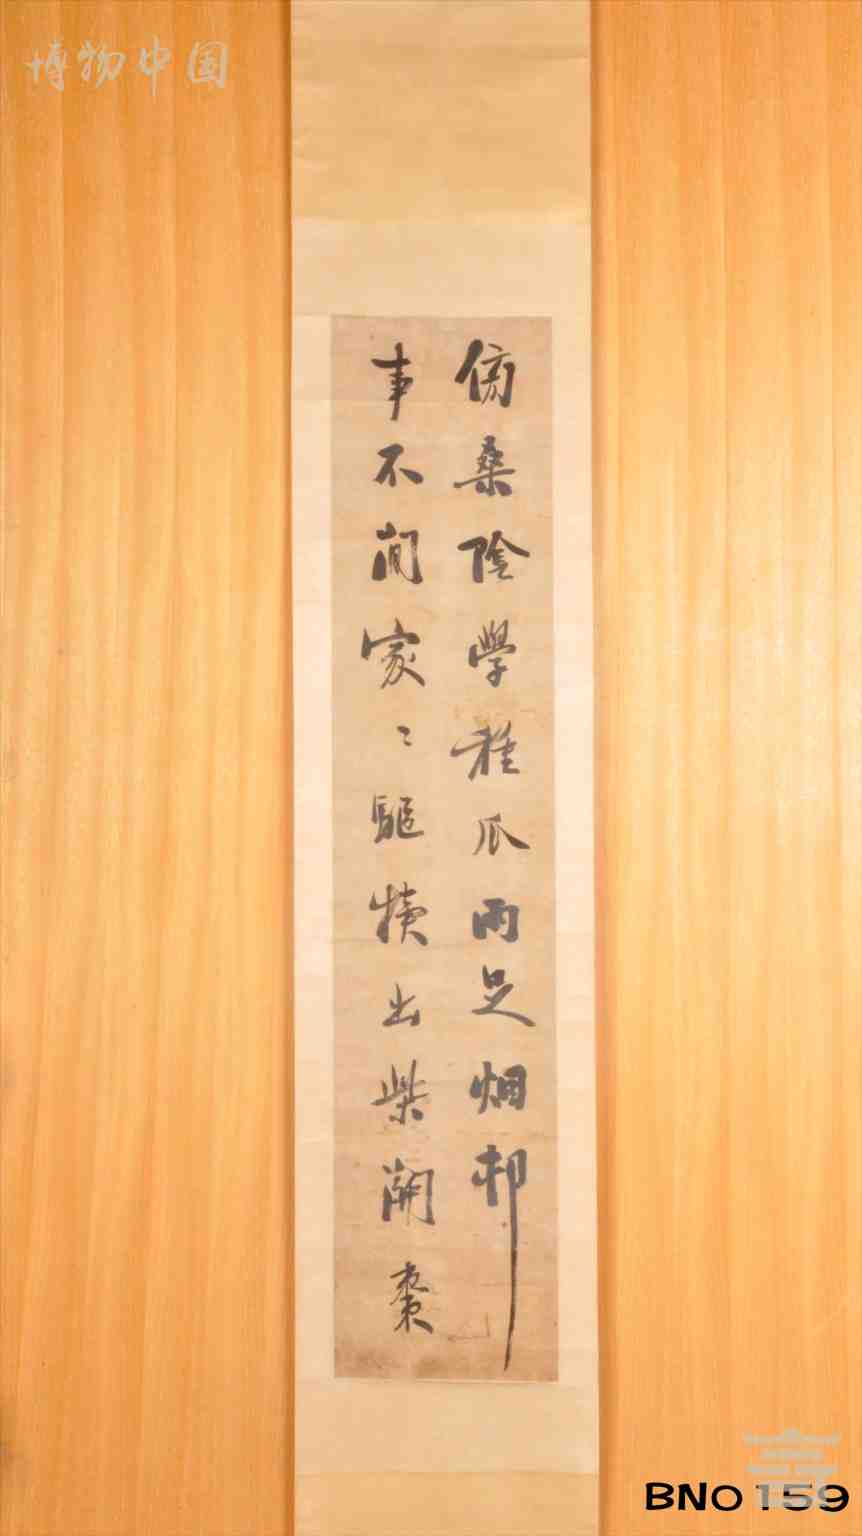 博物中国
傍桑陰學種瓜雨足烟邨
事不閒家〻驅犢出柴開棗
BNO 159